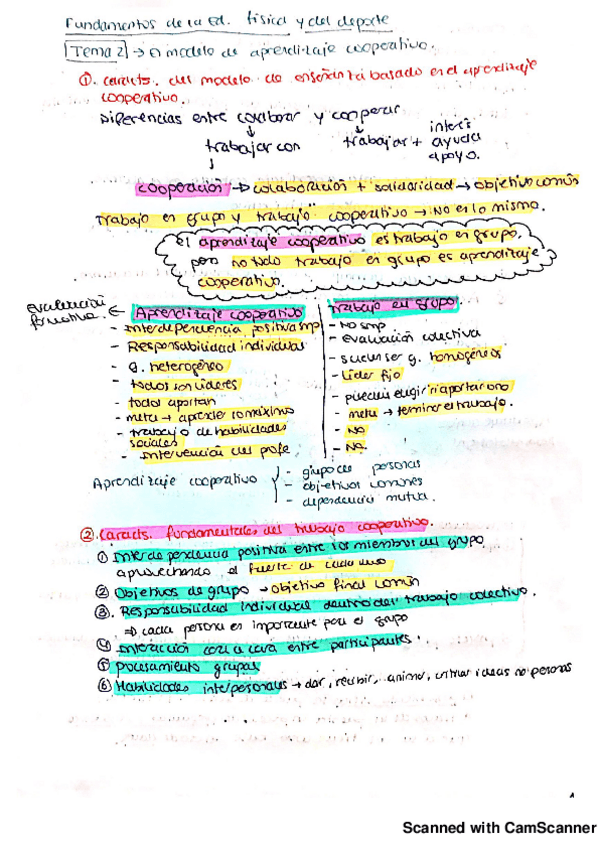 Fundamentos de la Ed. física y del deporte
Tema 2 → El modelo de aprendizaje cooperativo.
①. caracts. del modelo de enseñanza basado en el aprendizaje
cooperativo.
Diferencias entre colaborar y cooperar
↓ ↓
trabajar con trabajar + interés
ayuda
apoyo.
↓
cooperación → colaboración + solidaridad → objetivo común
Trabajo en grupo y trabajo cooperativo → No es lo mismo.
El aprendizaje cooperativo es trabajo en grupo,
pero no todo trabajo en grupo es aprendizaje
cooperativo.
evaluación
formativa. ← Aprendizaje cooperativo
- Interdependencia positiva smp
- Responsabilidad individual
- g. heterogéneo
- todos son líderes
- todos aportan
- meta → aprender lo máximo
- trabajo de habilidades
sociales
- Intervención del profe.
Trabajo en grupo
- No smp
- evaluación colectiva
- suelen ser g. homogéneos
- Líder fijo
- puedes elegir si aportar o no
- meta → terminar el trabajo.
- No
- No.
Aprendizaje cooperativo
- grupo de personas
- objetivos comunes
- dependencia mutua.
② Caracts. fundamentales del trabajo cooperativo.
① Interdependencia positiva entre los miembros del grupo.
aprovechando el fuerte de cada uno
② Objetivos de grupo → objetivo final común
③. Responsabilidad individual dentro del trabajo colectivo.
⇒ cada persona es importante para el grupo
④ Interacción cara a cara entre participantes.
⑤ Procesamiento grupal
⑥ Habilidades interpersonales → dar, recibir, animar, criticar ideas no personas
1
Scanned with CamScanner